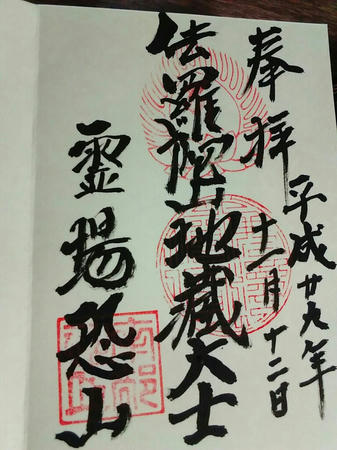 奉拝
平成廿九年
十一月十二日
佉羅陀山地蔵大士
霊場恐山